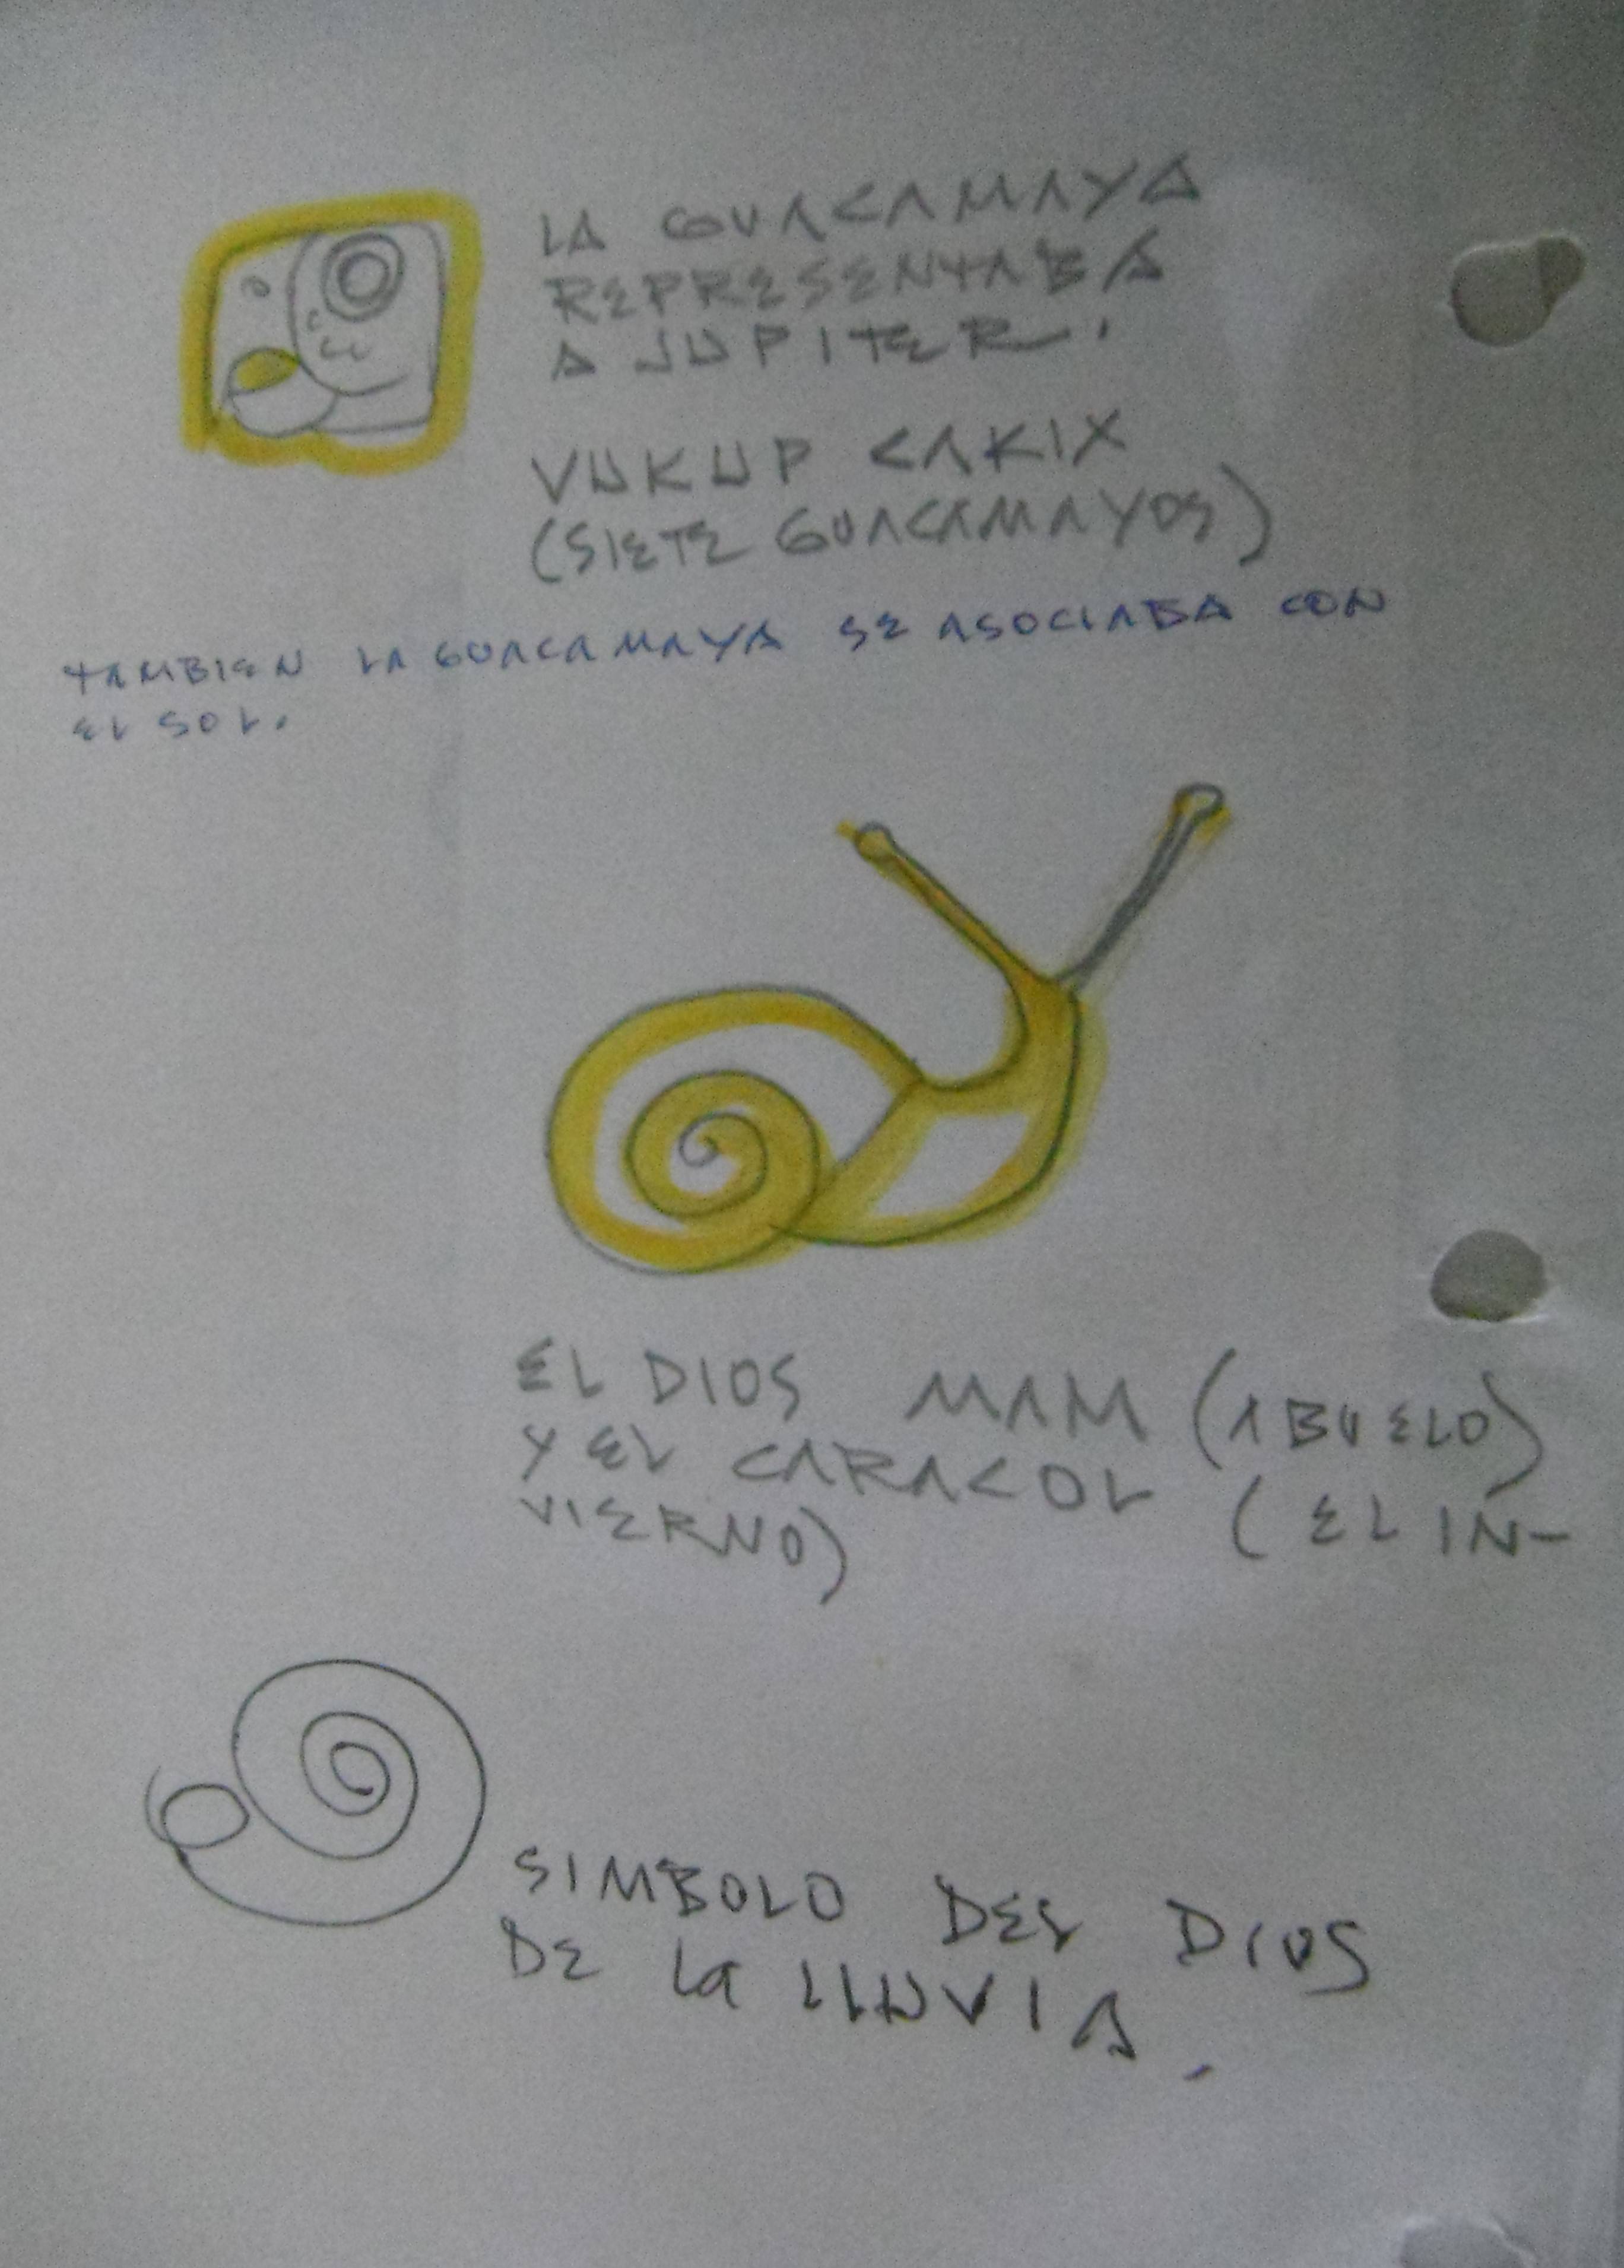 LA GUACAMAYA
REPRESENTABA
A JUPITER.
VUKUP CAKIX
(SIETE GUACAMAYOS)
TAMBIEN LA GUACAMAYA SE ASOCIABA CON
EL SOL.
EL DIOS MAM (ABUELO)
Y EL CARACOL (EL IN-
VIERNO)
SIMBOLO DEL DIOS
DE La LLUVIA.